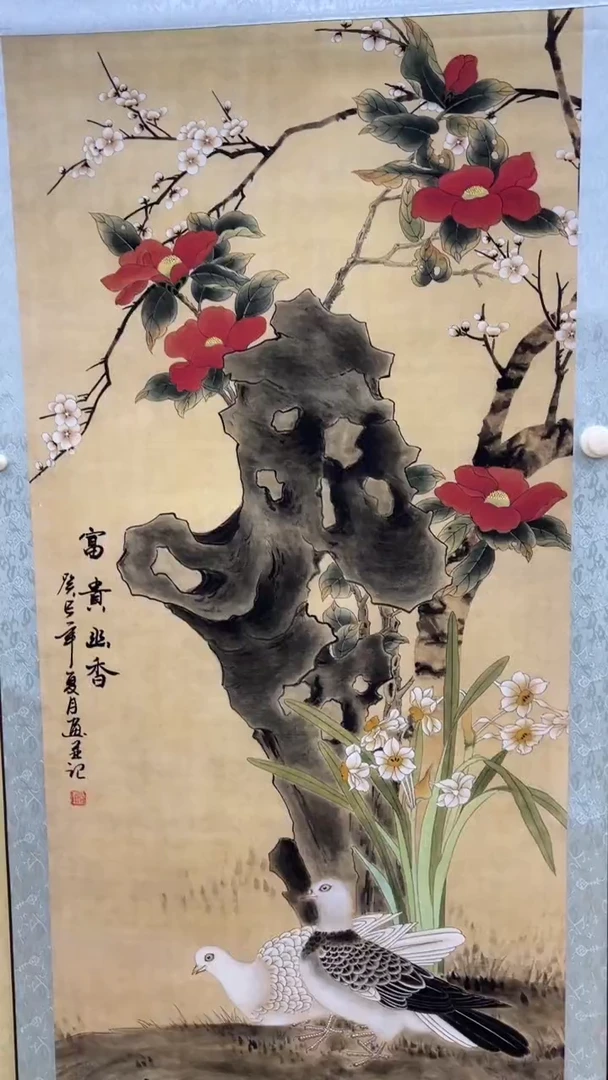 富貴幽香
癸巳年夏月画並记